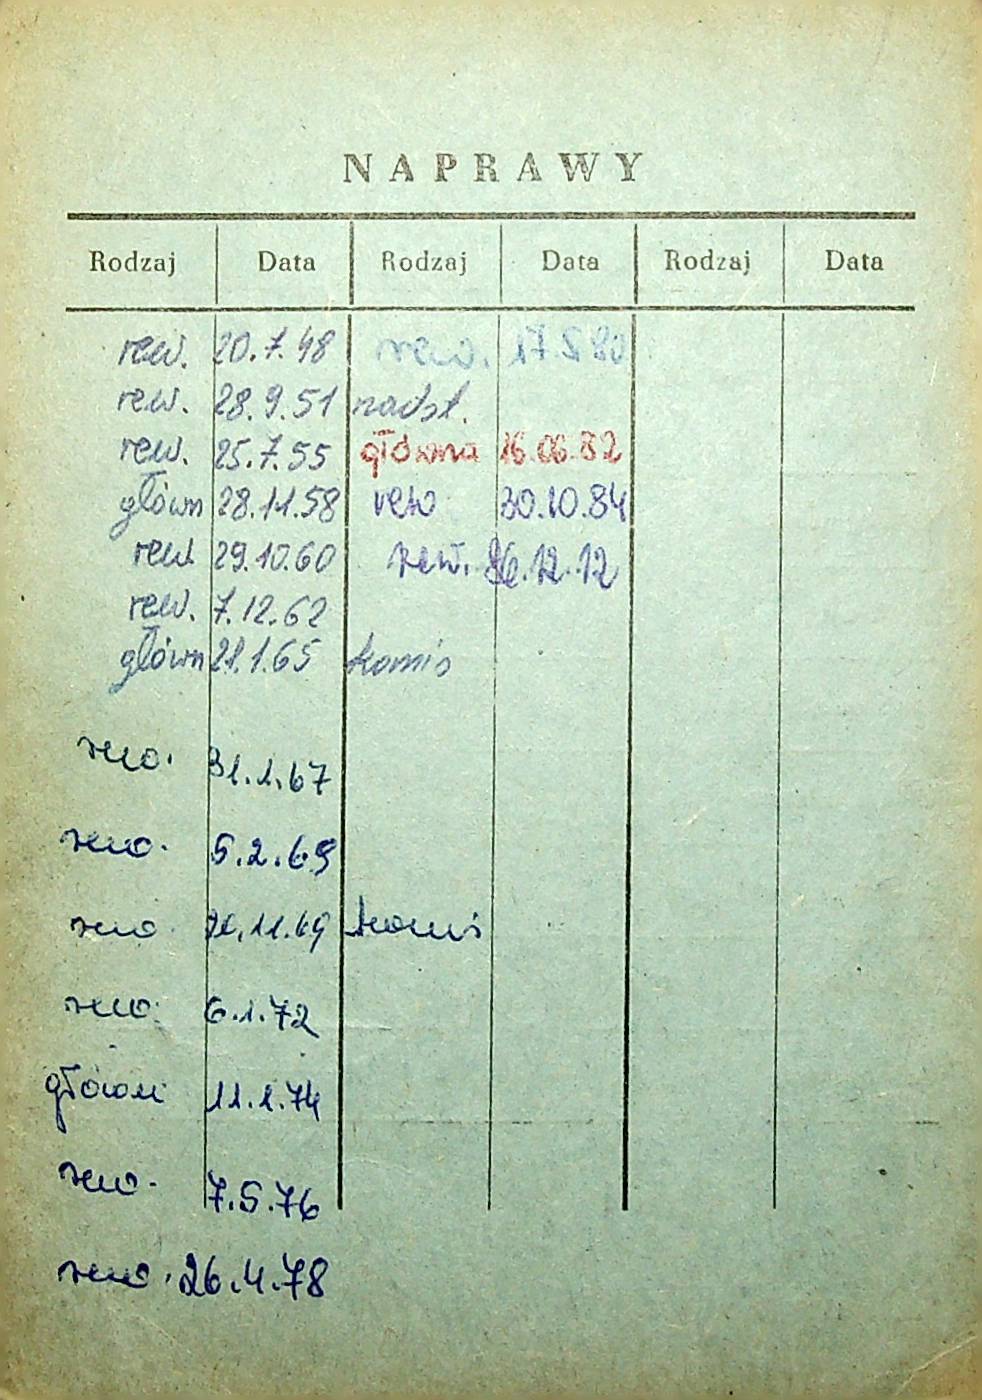 NAPRAWY
Rodzaj Data Rodzaj Data Rodzaj Data
rew. 20.7.48 rew. 17.5.80
rew. 28.9.51 nadst.
rew. 25.7.55 główna 16.06.82
główn 28.11.58 rew 30.10.84
rew 29.10.60 rew. 12.12
rew. 7.12.62
główn 21.1.65 komis
rew. 31.1.67
rew. 5.2.69
rew. .11.69 komis
rew. 6.1.72
główn 11.1.74
rew. 7.5.76
rew. 26.4.78